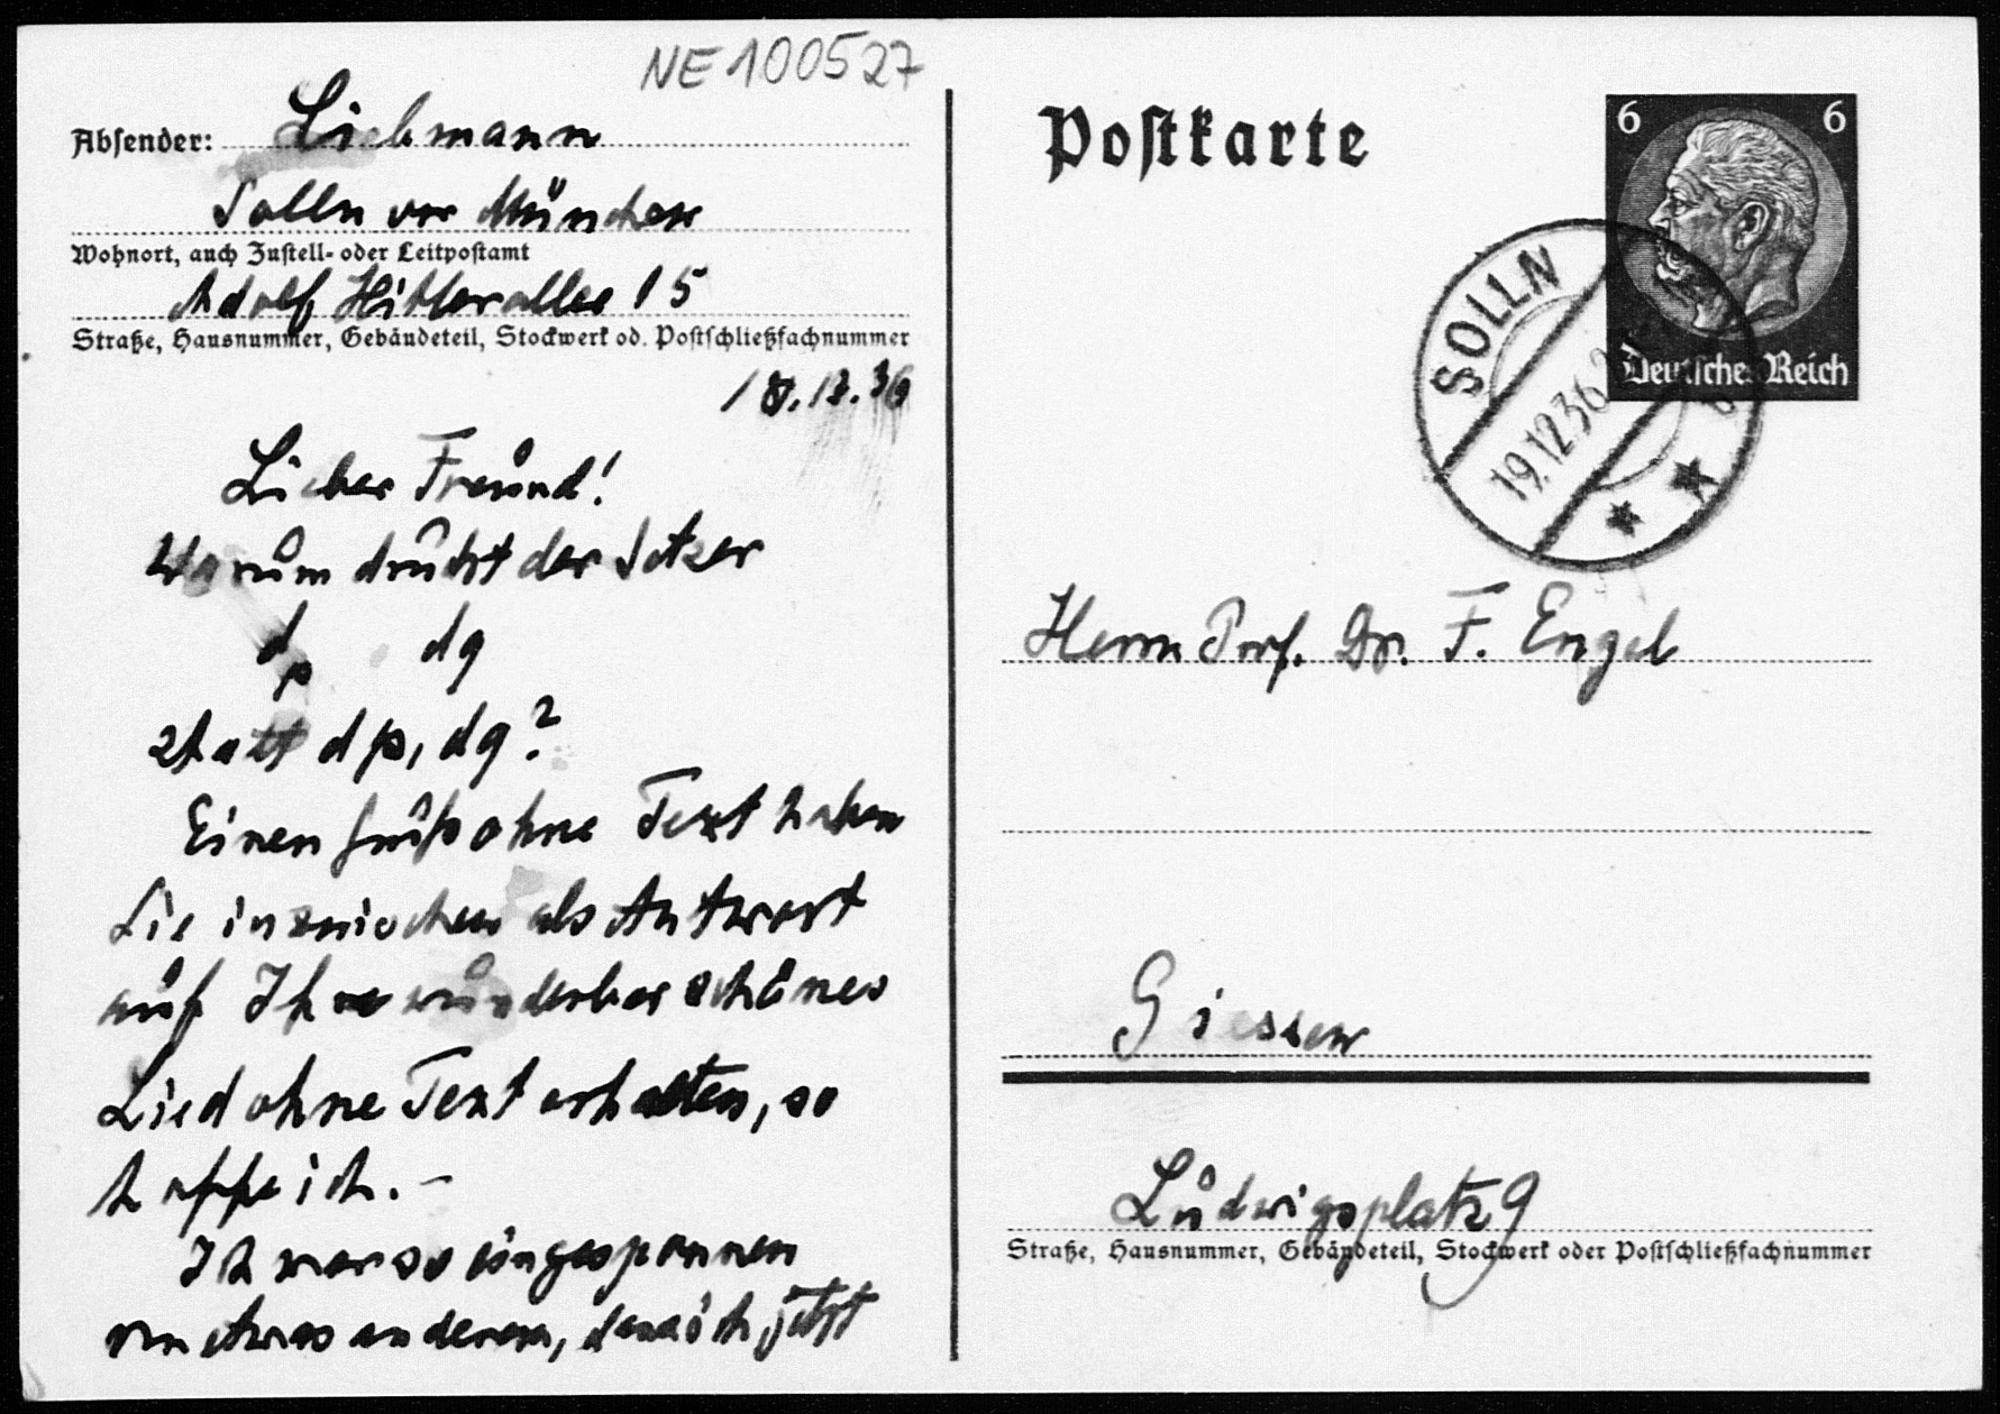 NE 100527
Absender: Liebmann
Solln vor München
Wohnort, auch Zustell- oder Leitpostamt
Adolf Hitlerallee 15
Straße, Hausnummer, Gebäudeteil, Stockwerk od. Postschließfachnummer
18.12.36
Lieber Freund!
Warum druckt der Setzer
dp dq
statt dp, dq?
Einen Gruß ohne Text haben
Sie inzwischen als Antwort
auf Ihr wunderbar schönes
Lied ohne Text erhalten, so
hoffe ich. –
Ich war so eingesponnen
von etwas anderem, dass ich jetzt
Postkarte
6 6
Deutsches Reich
SOLLN
19.12.36
Herrn Prof. Dr. F. Engel
Giessen
Ludwigsplatz 9
Straße, Hausnummer, Gebäudeteil, Stockwerk oder Postschließfachnummer